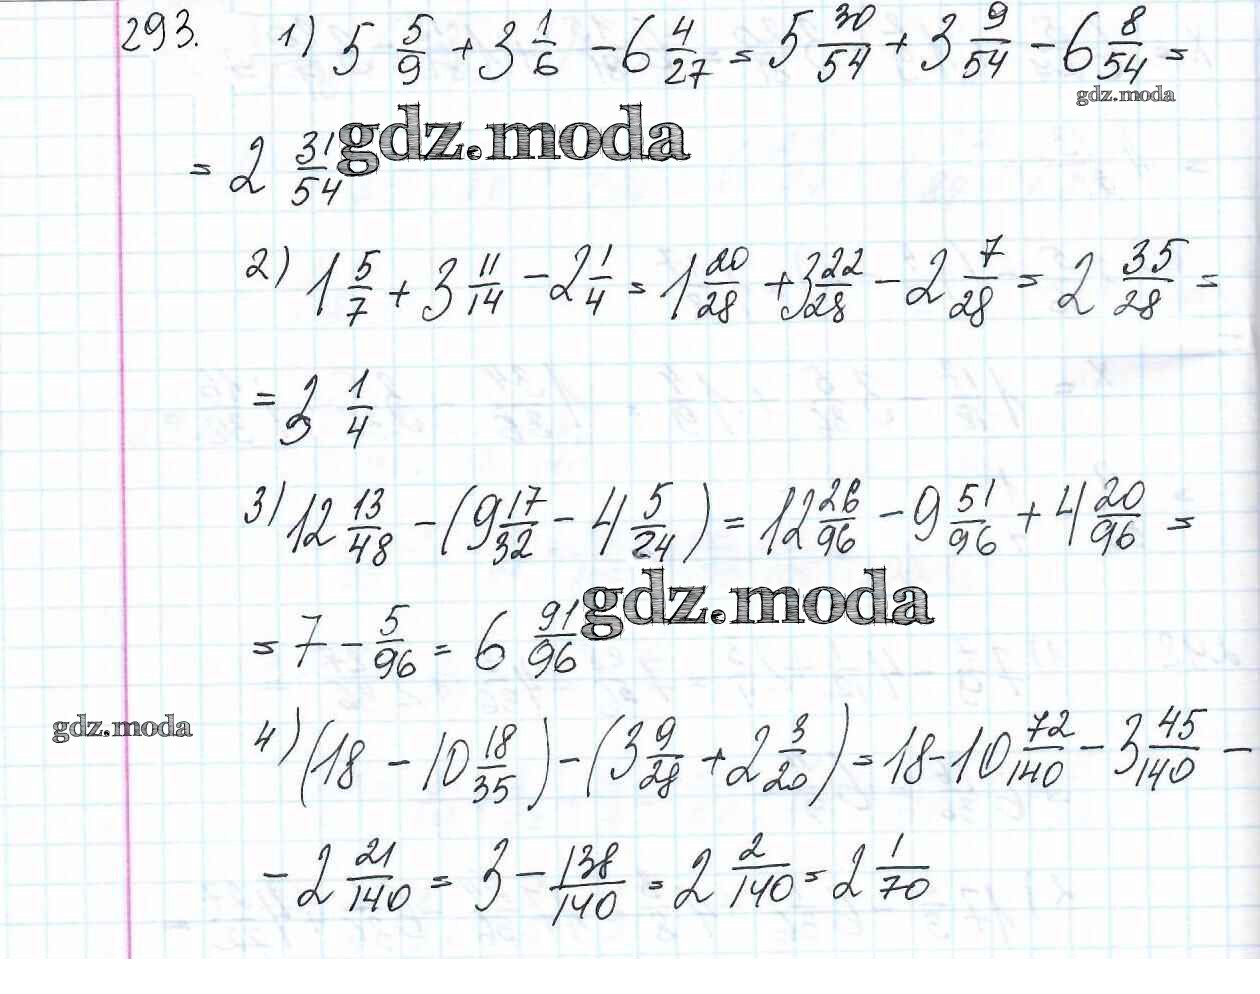 293. 1) 5 5/9 + 3 1/6 - 6 4/27 = 5 30/54 + 3 9/54 - 6 8/54 =
gdz.moda
= 2 31/54 gdz.moda
2) 1 5/7 + 3 11/14 - 2 1/4 = 1 20/28 + 3 22/28 - 2 7/28 = 2 35/28 =
= 3 1/4
3) 12 13/48 - (9 17/32 - 4 5/24) = 12 26/96 - 9 51/96 + 4 20/96 =
= 7 - 5/96 = 6 91/96 gdz.moda
gdz.moda
4) (18 - 10 18/35) - (3 9/28 + 2 3/20) = 18 - 10 72/140 - 3 45/140 -
- 2 21/140 = 3 - 138/140 = 2 2/140 = 2 1/70